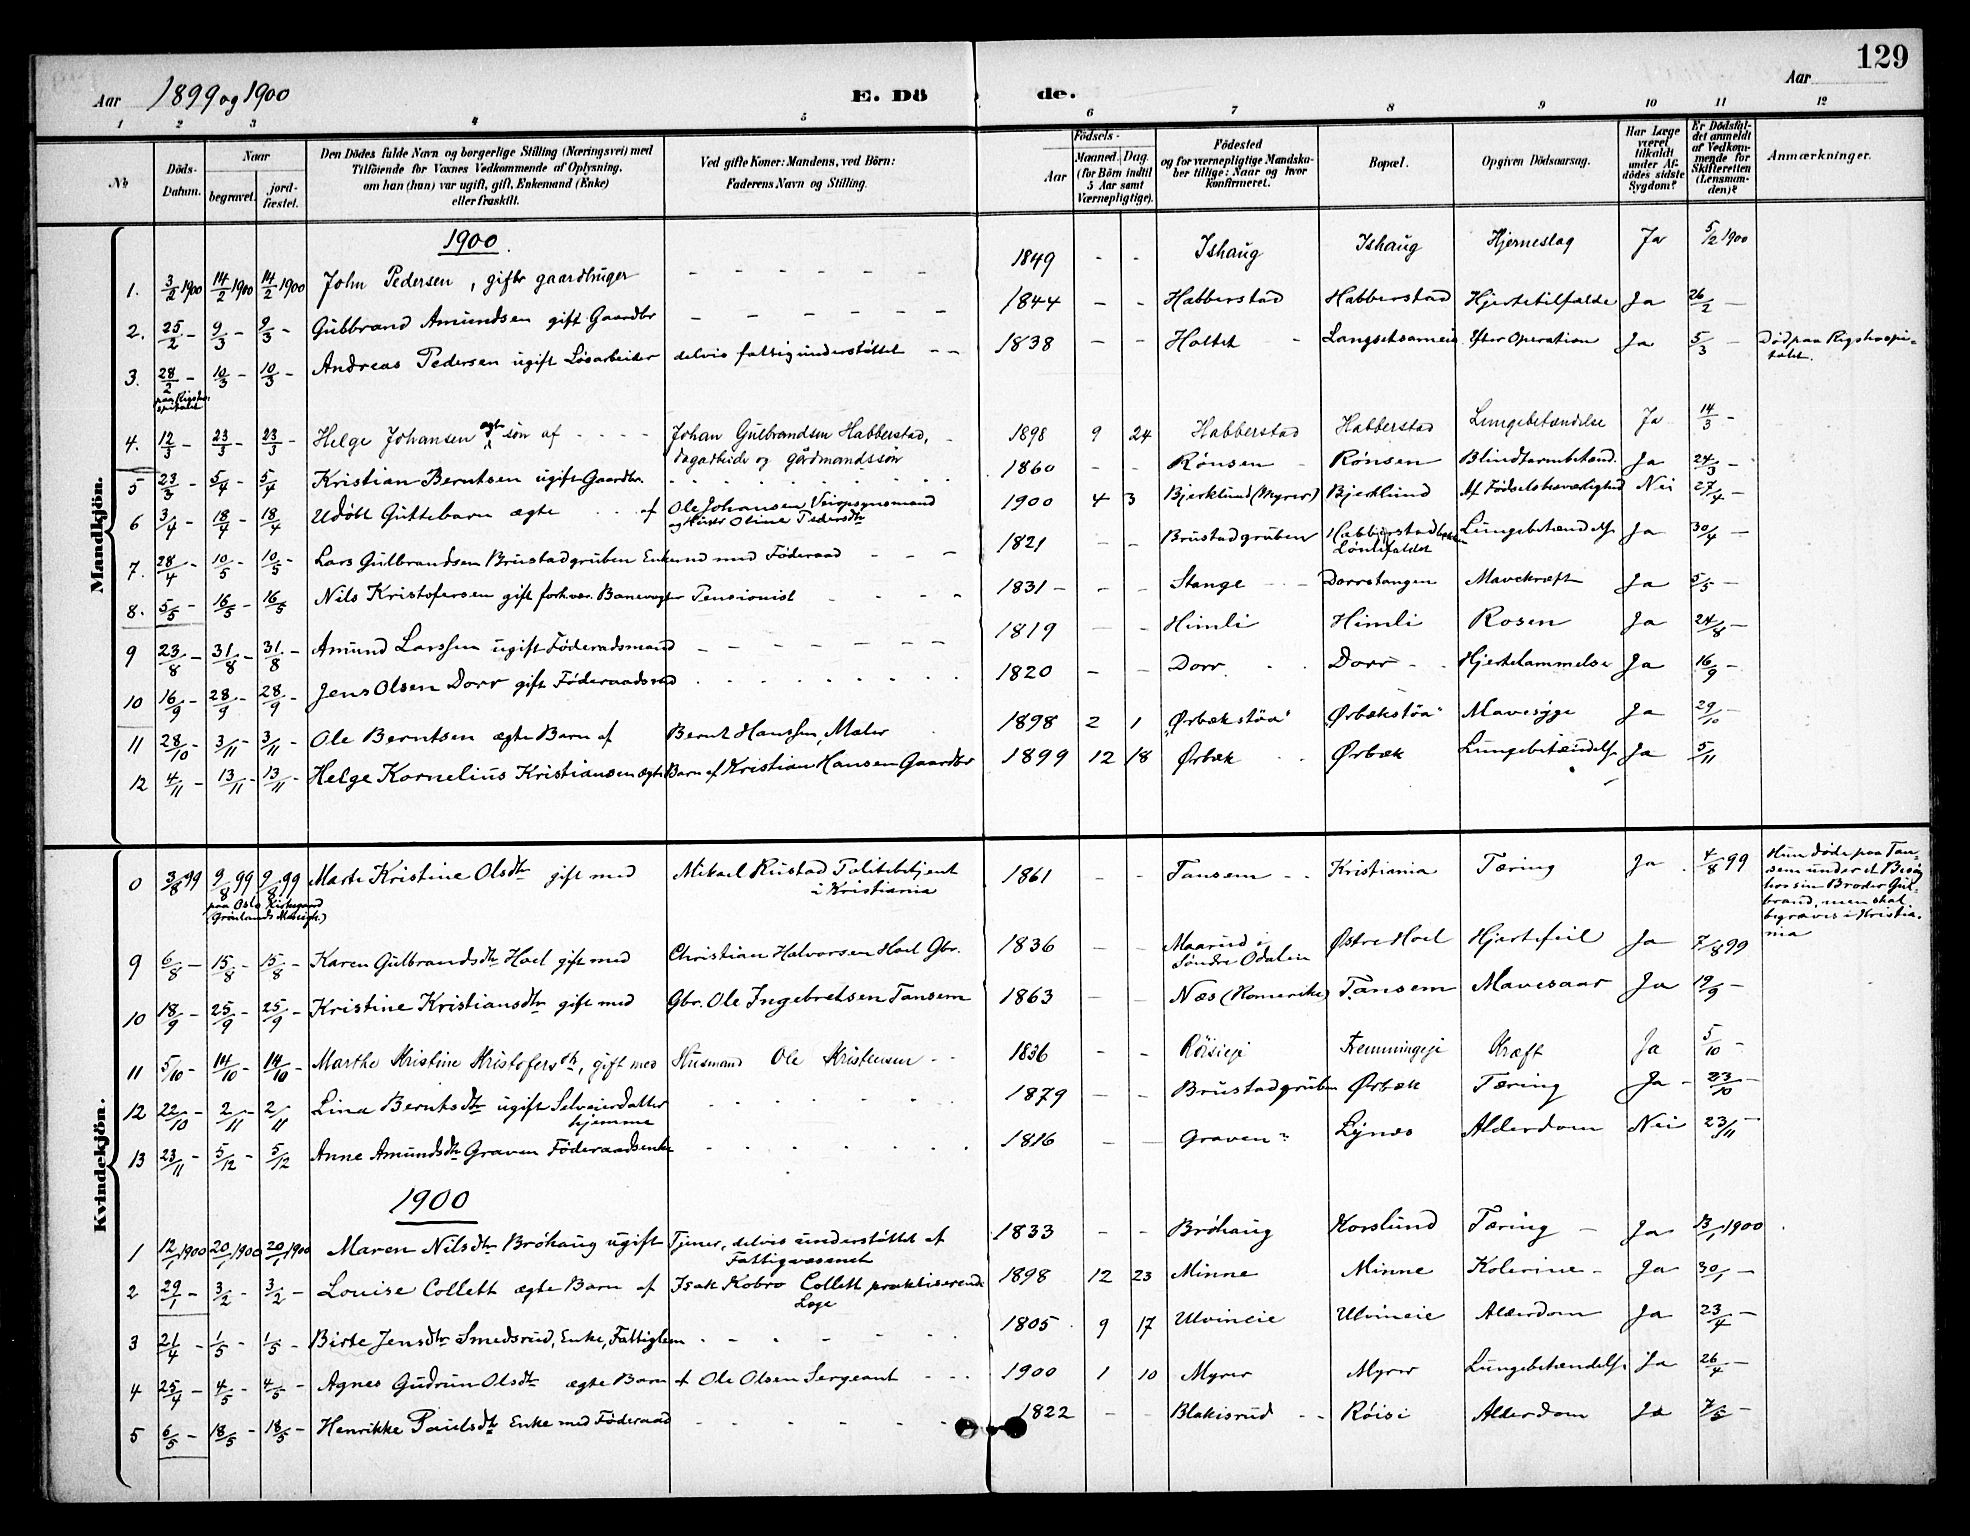 129
Aar 1899 og 1900
E. Dö de.
Aar
1 2 3 4 5 6 7 8 9 10 11 12
No
Döds-Datum.
Naar
begravet.
jordfæstet.
Den Dödes fulde Navn og borgerlige Stilling (Næringsvei) med
Tilföiende for Voxnes Vedkommende af Oplysning,
om han (hun) var ugift, gift, Enkemand (Enke)
eller fraskilt.
Ved gifte Koner: Mandens, ved Börn:
Faderens Navn og Stilling.
Födsels-
Aar
Maaned. Dag.
(for Börn indtil
5 Aar samt
Værnepligtige).
Födested
og for værnepligtige Mandska-
ber tillige: Naar og hvor
konfirmeret.
Bopæl.
Opgiven Dödsaarsag.
Har Læge
været
tilkaldt
under Af-
dödes sidste
Sygdom?
Er Dödsfal-
det anmeldt
af Vedkom-
mende for
Skifteretten
(Lensman-
den)?
Anmærkninger.
Mandkjön.
1900
1. 3/2 1900 14/2 1900 14/2 1900 John Pedersen, gift gaardbruger - - - - - - 1849 - - Ishaug Ishaug Hjerneslag Ja 5/2 1900
2. 25/2 - 9/3 - 9/3 - Gulbrand Amundsen gift Gaardbr - - - - - - 1844 - - Habberstad Habberstad Hjertetilfælde Ja 26/2 -
3. 28/2 - 10/3 - 10/3 - Andreas Pedersen ugift Løsarbeider delvis fattigunderstøttet - - 1838 - - Holtet - Langsethsameie Efter Operation Ja 5/3 - Død paa Rigshospi-
talet.
paa Rigsho-
spitalet
4. 12/3 - 23/3 - 23/3 - Helge Johansen ægte søn af - - - - Johan Gulbrandsen Habberstad, - 1898 9 24 Habberstad Habberstad Lungebetændelse Ja 14/3 -
dagarbeider og gårdmandssøn
5 23/3 - 5/4 - 5/4 Kristian Berntsen ugift Gaardbr. 1860 - - Rønsen - Rønsen Blindtarmbetænd. Ja 24/3 -
6 3/4 - 18/4 - 18/4 Udøbt Guttebarn ægte af Ole Johansen, 1900 4 3 Bjerklund (Myrer) Bjerklund Af Fødselsbesværlighed Nei 27/4 -
og Hustr Oline Pedersdtr
7. 28/4 - 10/5 - 10/5 - Lars Gulbrandsen Brustadgruben Enkemd med Føderaad - - - 1821 - - Brustadgruben Lungebetændelse Ja 30/4 -
8. 5/5 - 16/5 - 16/5 Nils Kristofersen gift forhvær. Banevogter Pensionist - - - - 1831 - - - Stange - - Dorrstangen Mavekræft Ja 5/5 -
9 23/8 - 31/8 - 31/8 - Amund Larssen ugift Føderadsmand - - - - - - 1819 - - Himli Himli Rosen Ja 24/8 -
10 16/9 - 28/9 - 28/9 - Jens Olsen Dorr gift Føderaadsmd 1820 - - Dorr Dorr - Hjertelammelse Ja 16/9 -
11 28/10 - 3/11 - 3/11 - Ole Berntsen ægte Barn af Bernt Hanssen, Maler 1898 2 1 "Ørbækstøa" "Ørbækstøa" Mavesyge Ja 29/10 -
12 4/11 - 13/11 - 13/11 - Helge Kornelius Kristiansen ægte Barn af Kristian Hansen Gaardbr 1899 12 18 Ørbæk Ørbæk Lungebetændelse Ja 5/11
Kvindekjön.
0 3/8 99 9/8 99 9/8 99 Marte Kristine Olsdtr gift med Mikael Rustad Politibetjent 1861 - - Tansem - - Kristiania Tæring Ja 4/8 99 Hun døde paa Tan-
i Kristiania
paa Oslo Kirkegaard
Grønlands Menigh.)
sem under et Besøg
hos sin Broder Gul-
brand, men skal
begraves i Kristia-
nia
9 6/8 - 15/8 - 15/8 - Karen Gulbrandsdtr Hoel gift med Christian Halvorsen Hoel Gbr. 1836 - - Maarud i Østre Hoel Hjertefeil Ja 7/8 99
Søndre Odalen
10 18/9 - 25/9 - 25/9 - Kristine Kristiansdtr gift med Gbr. Ole Ingebretsen Tansem 1863 - - Næs (Romerike) Tansem Mavesaar Ja 19/9 -
11 5/10 - 14/10 - 14/10 - Marthe Kristine Kristofersdtr, gift med Husmand Ole Kristensen - - 1836 - - Røisieje Fremmingeje Kræft Ja 5/10 -
12 22/10 - 2/11 - 2/11 Lina Berntsdtr ugift Selveierdatter 1879 - - Brustadgruben Ørbæk Tæring Ja - 23/10 -
hjemme
13 23/11 - 5/12 - 5/12 Anne Amundsdtr Graven Føderaadsenke 1816 - - Graven Lynes Alderdom Nei 23/11 -
1900
1 12/1 1900 20/1 1900 20/1 1900 Maren Nilsdtr Brøhaug ugift Tjener, delvis understøttet af 1833 - - Brøhaug Korslund Tæring - Ja 13/1 1900
Fattigvæsenet
2 29/1 - 3/2 - 3/2 - Louise Collett ægte Barn af Isak Kobro Collett praktiserende 1898 12 23 Minne Minne Kolerine - Ja 30/1 -
Læge
3 21/4 - 1/5 - 1/5 - Birte Jensdtr Smedsrud, Enke, Fattiglem - - - - - - 1805 9 17 Ulvineie Ulvineie Alderdom Ja 23/4 -
4 25/4 - 4/5 - 4/5 - Agnes Gudrun Olsdtr ægte Barn af Ole Olsen Sergeant - - - 1900 1 10 Myrer Myrer Lungebetændelse Ja 26/4 -
5 6/5 - 18/5 - 18/5 - Henrikke Paulsdtr Enke med Føderaad - - - - - - 1822 - - Blakisrud - - Røisi Alderdom Ja 7/5 -